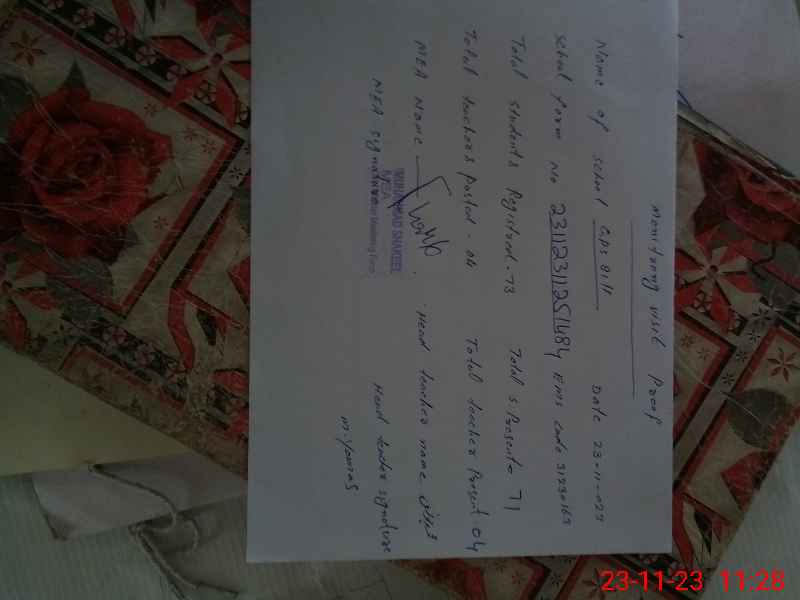 Monitring visit Proof
Name of school GPS Bill Date 23-11-023
School form no 23112311251484 EMIS code 31230163
Total students Registred - 73 Total s Present - 71
Total teachers posted - 04 Total teacher Present: 04
MEA Name Head teacher name
MEA signature Head teacher signature
MUHAMMAD SHAKEEL
MEA
M. Younas
23-11-23 11:28